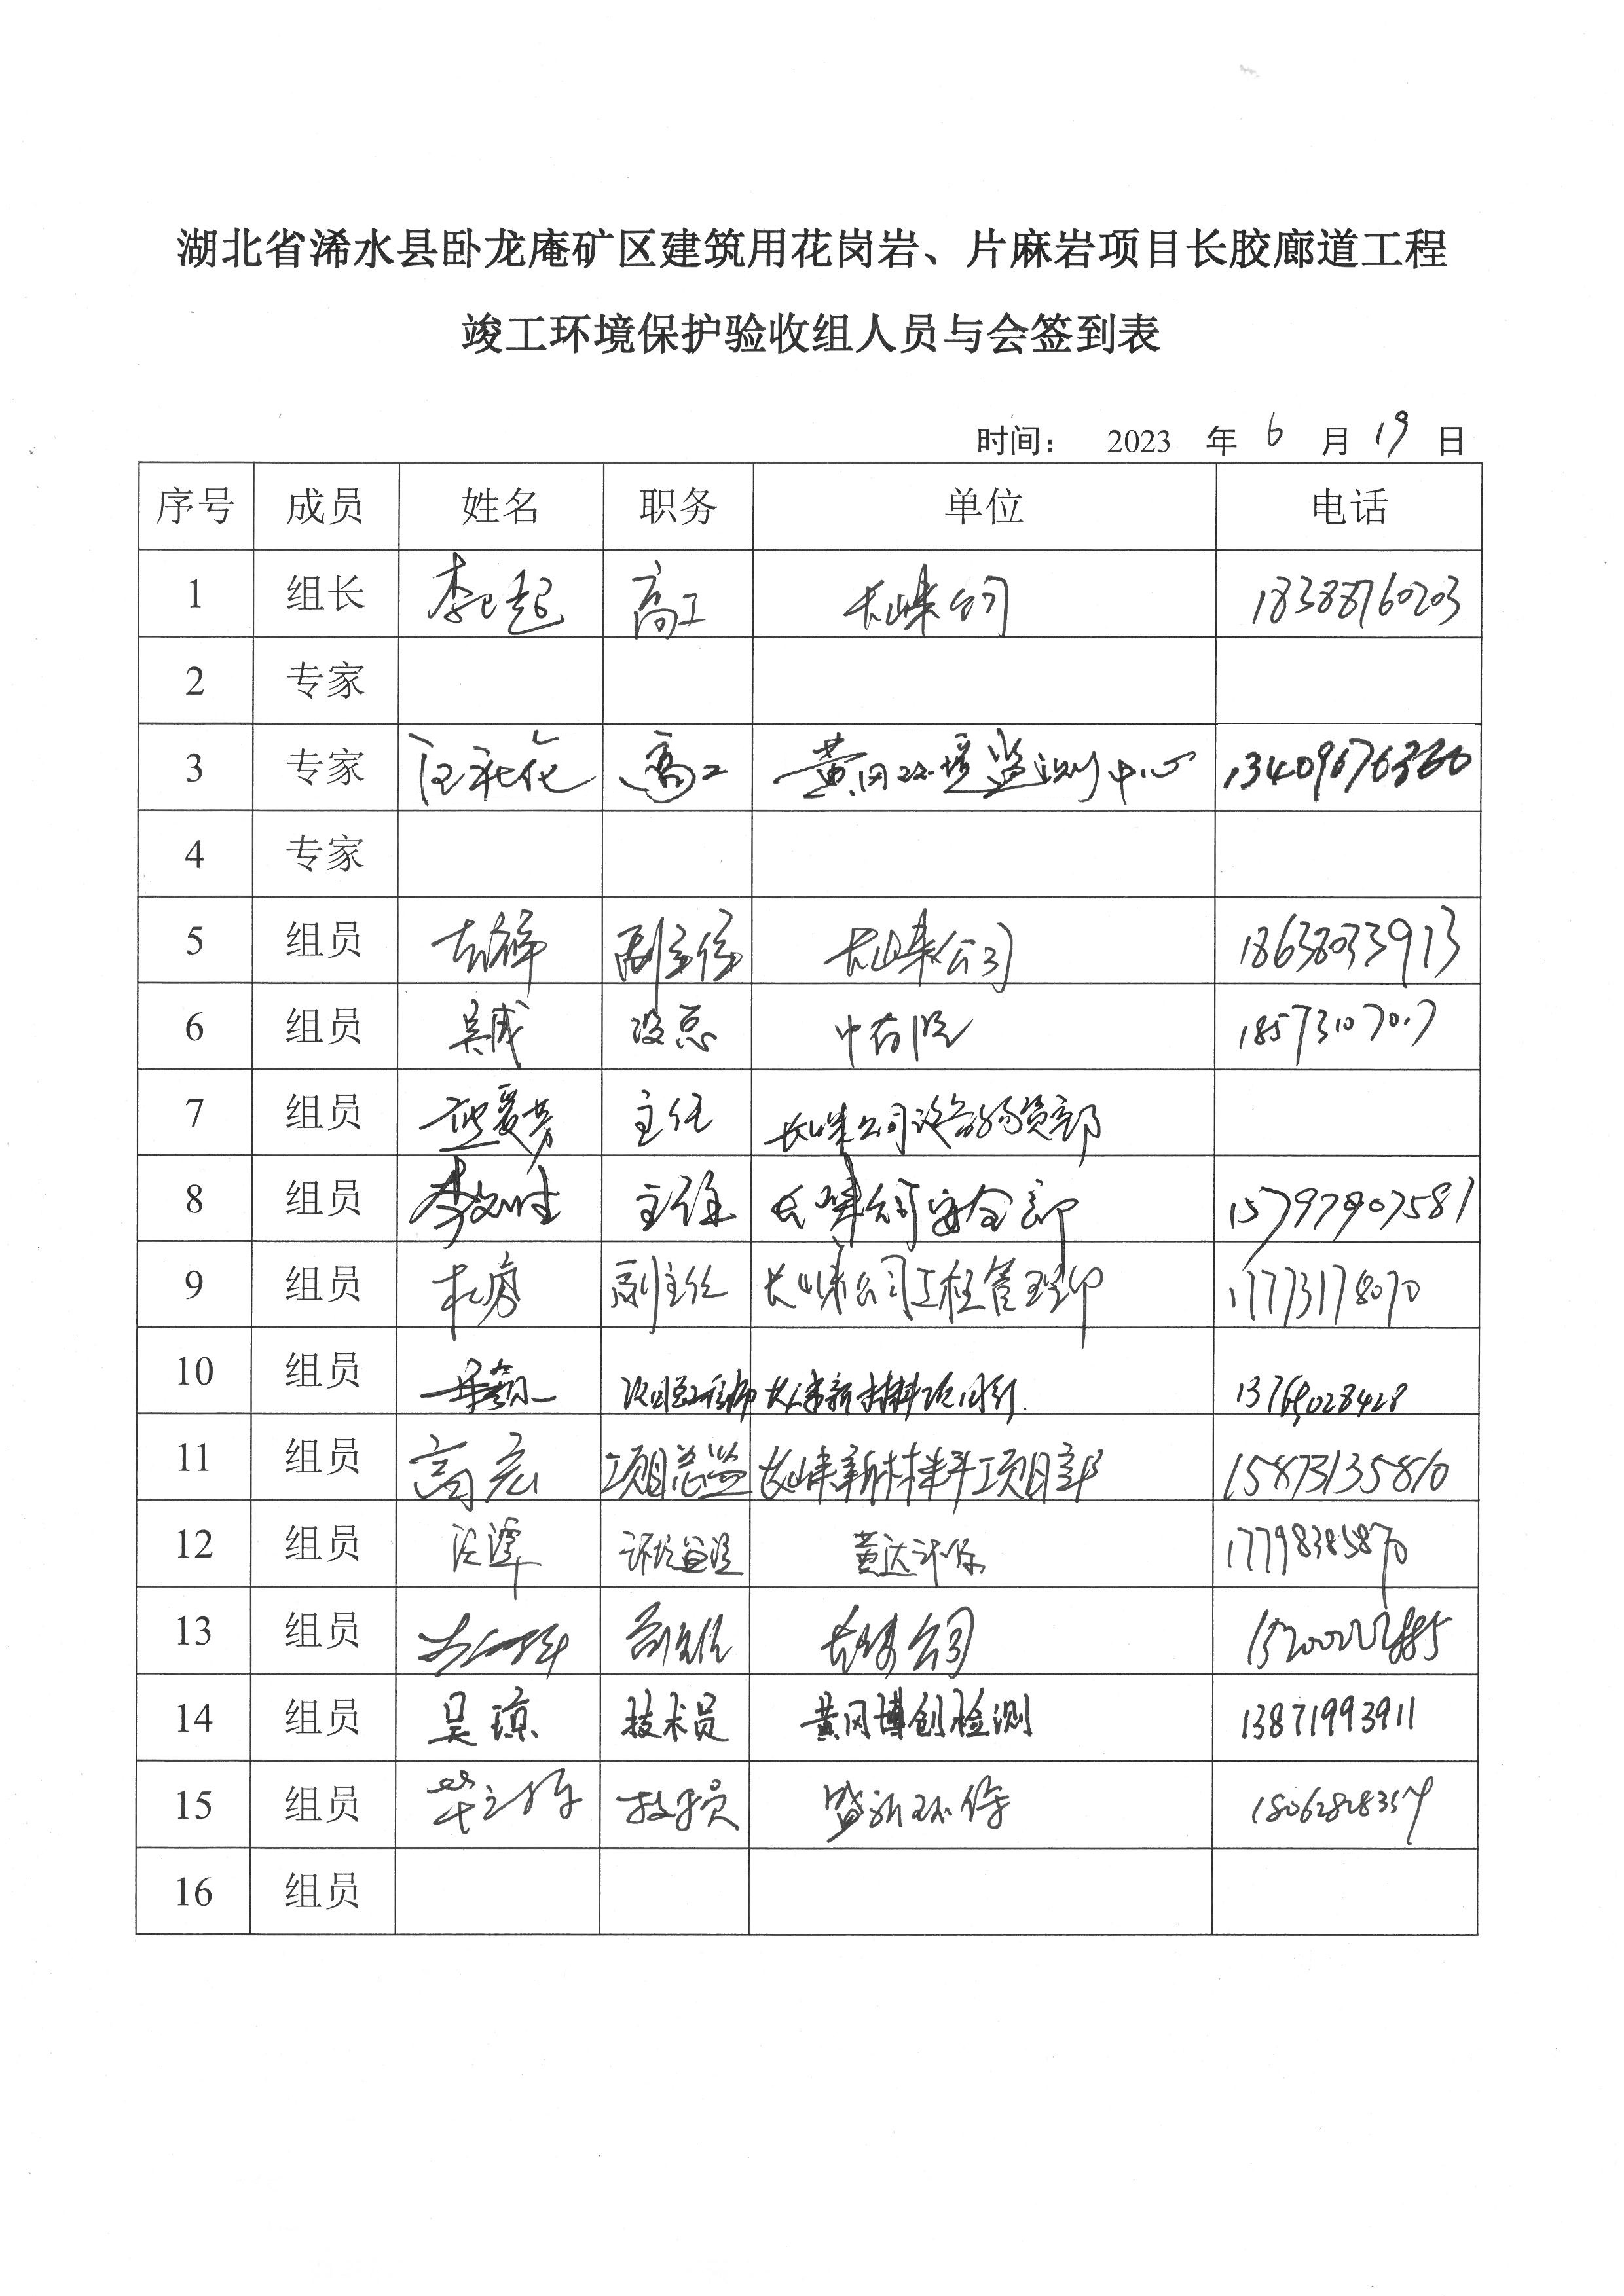 湖北省浠水县卧龙庵矿区建筑用花岗岩、片麻岩项目长胶廊道工程
竣工环境保护验收组人员与会签到表
时间： 2023 年 6 月 19 日
序号 成员 姓名 职务 单位 电话
1 组长 李己起 高工 长崃公司 18388760203
2 专家
3 专家 高工 黄冈环境监测中心 13409676360
4 专家
5 组员 副主任 长崃公司 18638033913
6 组员 吴成 设总 18573107017
7 组员 熊爱芳 主任 长崃公司设备物资部
8 组员 主任 长崃公司安全部 15797907581
9 组员 杜睿 副主任 长崃公司工程管理部 17773178070
10 组员 项目总工程师 长崃新材料项目部 13769028428
11 组员 高宏 项目总监 长崃新材料项目部 15873135810
12 组员 环境监理 黄达环保 17798385870
13 组员 副主任 长崃公司
14 组员 吴琼 技术员 黄冈博创检测 13871993911
15 组员 技术员 环保
16 组员